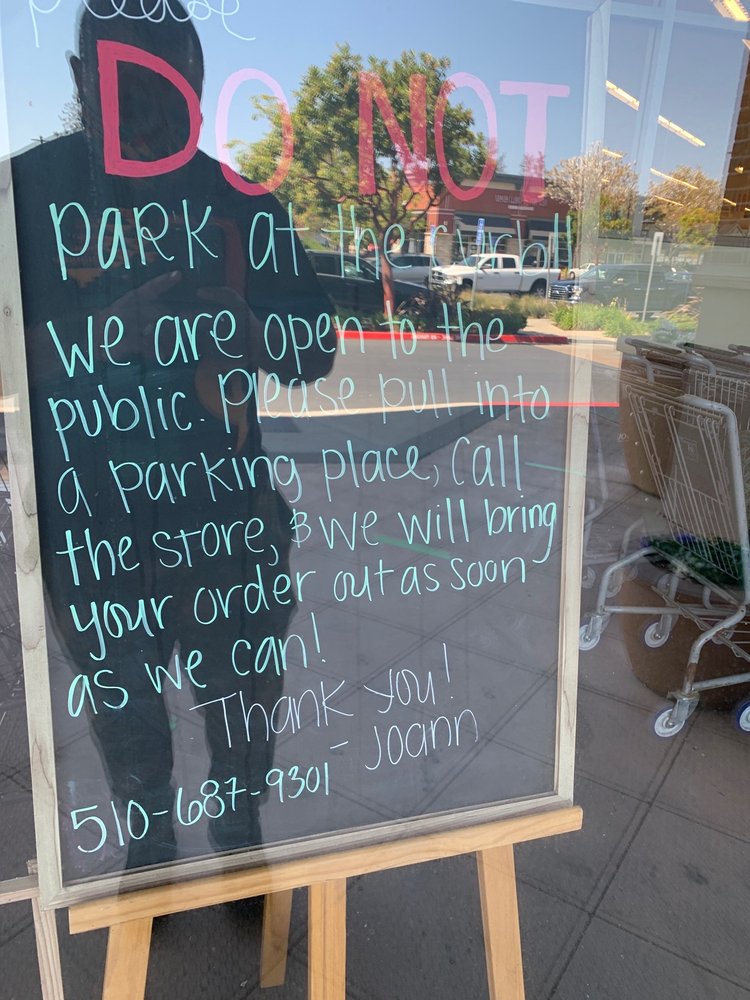 please
DO NOT
park at the curb!!
We are open to the
public. Please pull into
a parking place, Call
the store, & we will bring
your order out as soon
as we can!
Thank you!
- Joann
510-687-9301